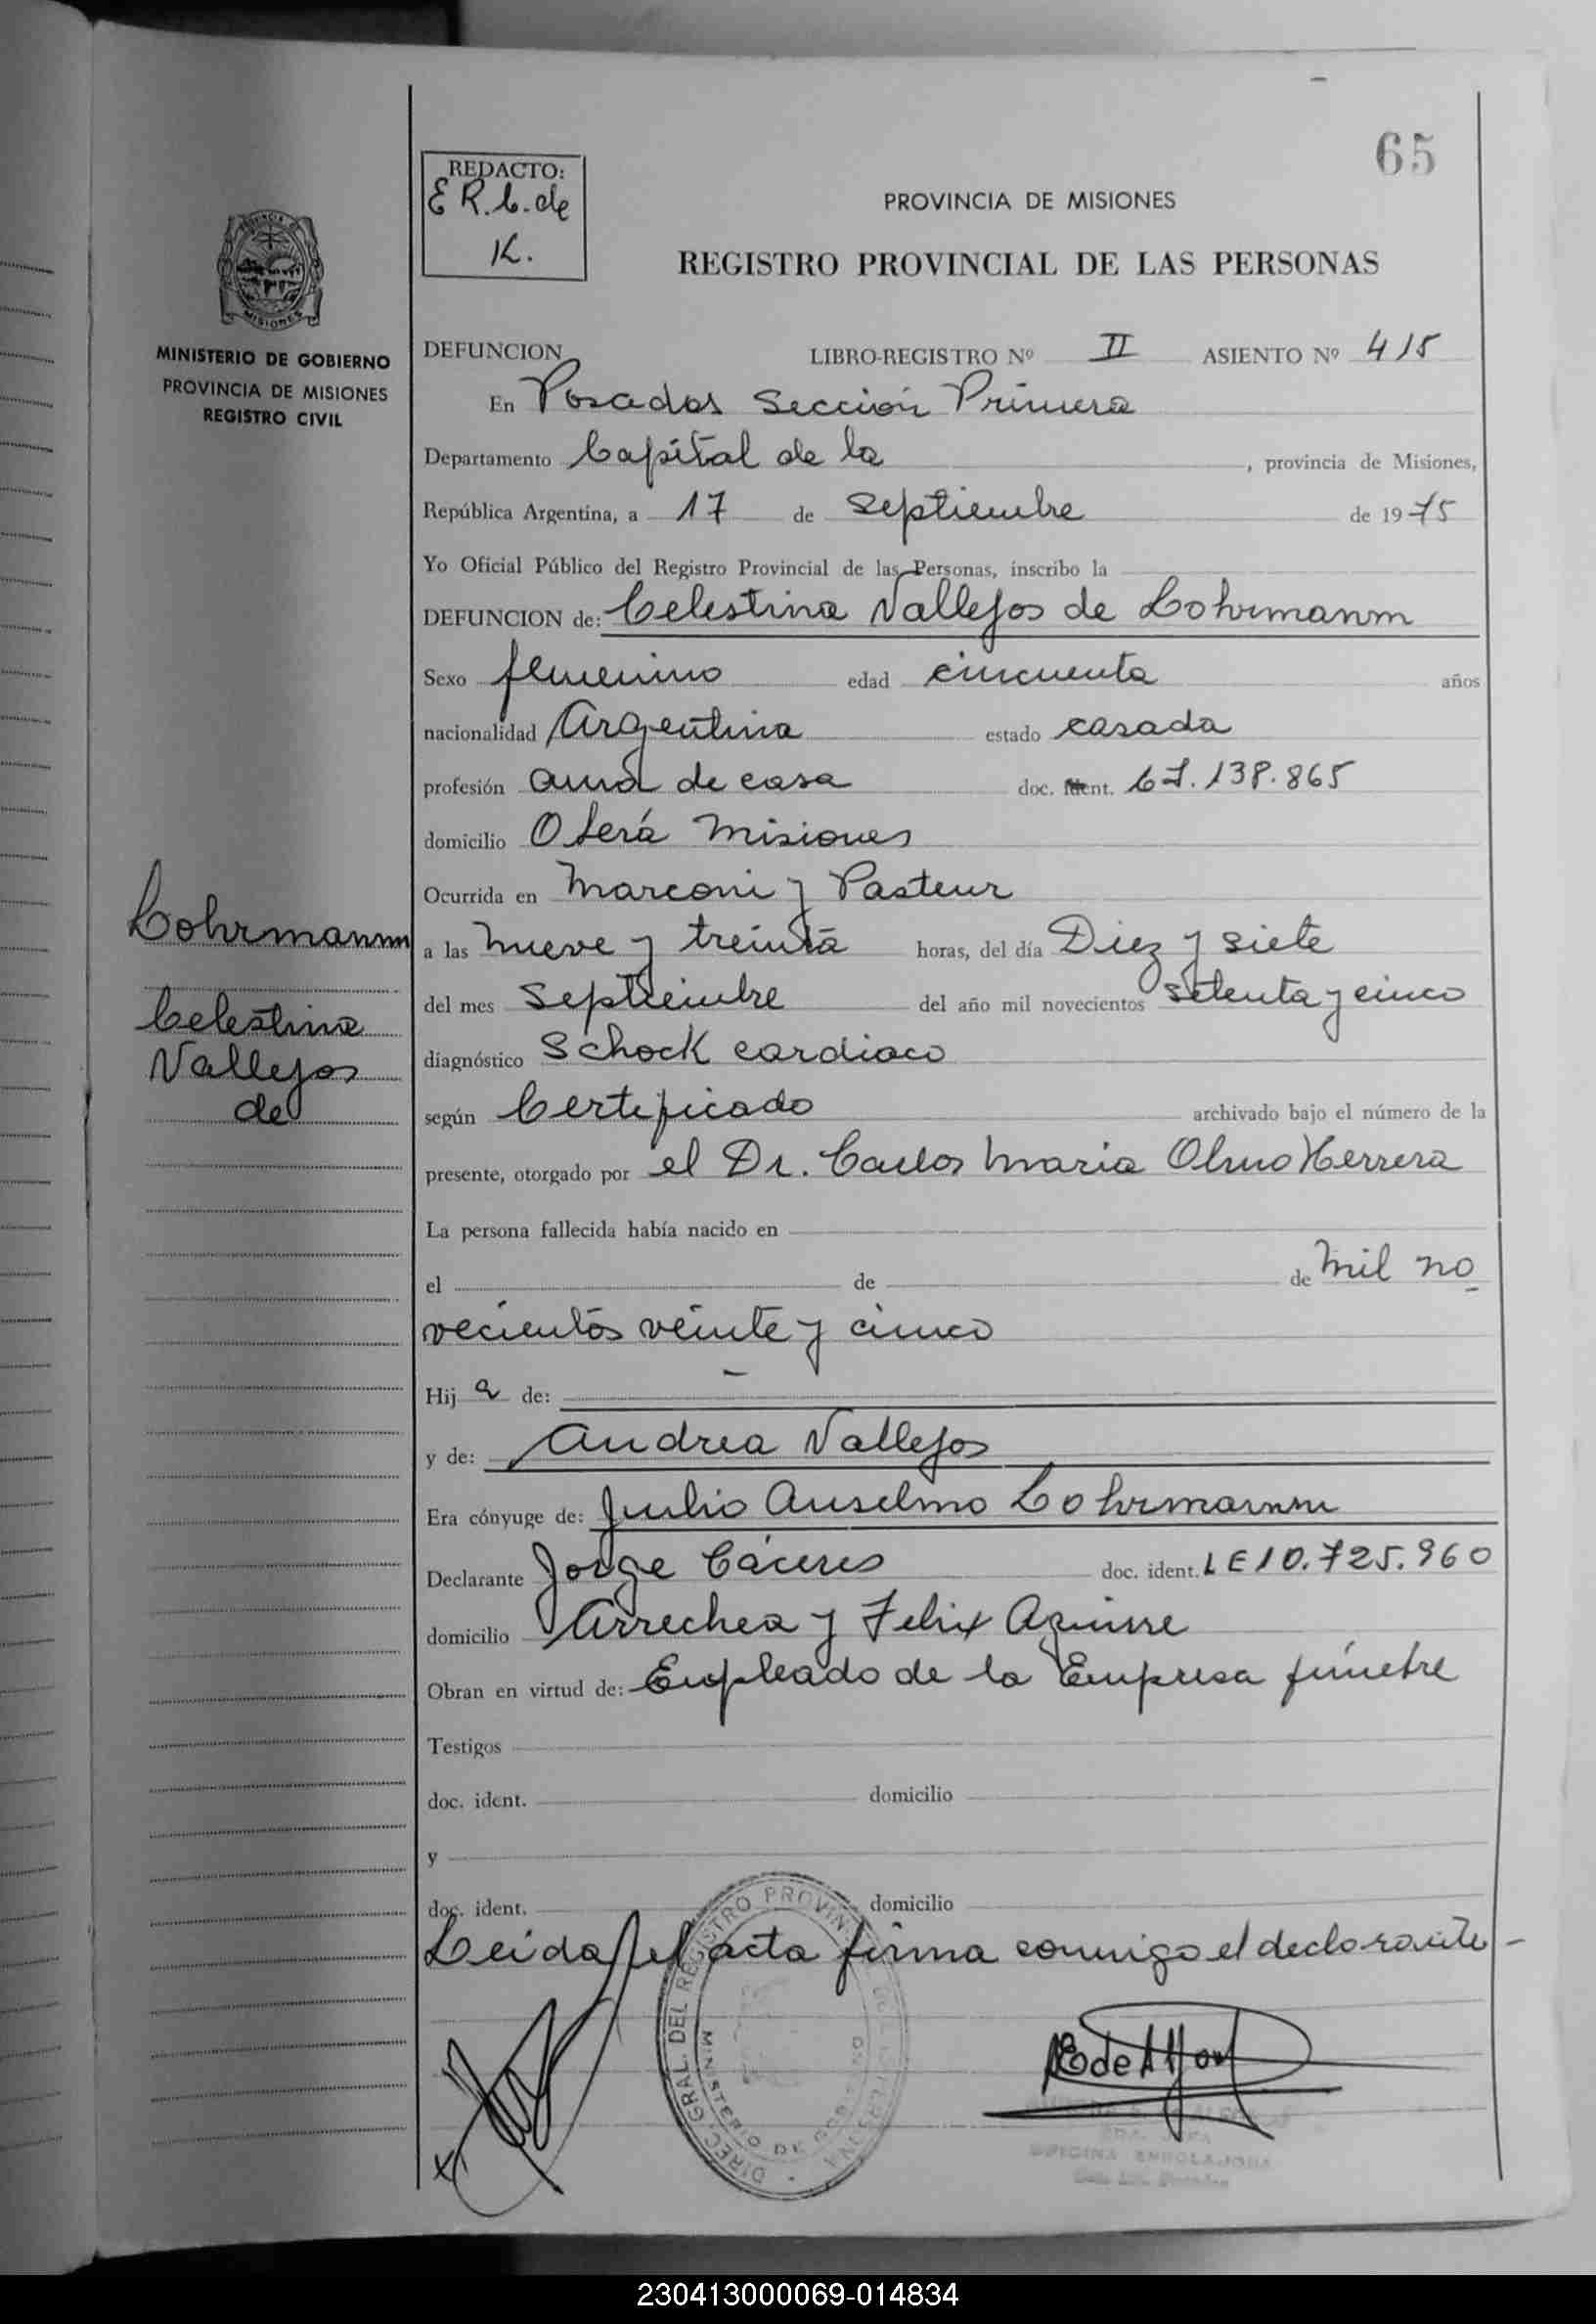 65
REDACTO:
E R. C. de
K.
PROVINCIA DE MISIONES
REGISTRO PROVINCIAL DE LAS PERSONAS
MISIONES
MINISTERIO DE GOBIERNO
PROVINCIA DE MISIONES
REGISTRO CIVIL
DEFUNCION LIBRO-REGISTRO Nº II ASIENTO Nº 415
En Posadas Sección Primera
Departamento Capital de la , provincia de Misiones,
República Argentina, a 17 de Septiembre de 1975
Yo Oficial Público del Registro Provincial de las Personas, inscribo la
DEFUNCION de: Celestina Vallejos de Lohrmanm
Sexo femenino edad cincuenta años
nacionalidad Argentina estado casada
profesión ama de casa doc. ident. 138.865
domicilio Oberá Misiones
Ocurrida en Marconi y Pasteur
a las nueve y treinta horas, del día Diez y siete
del mes Septiembre del año mil novecientos setenta y cinco
diagnóstico Schock cardiaco
según Certificado archivado bajo el número de la
presente, otorgado por el Dr. Carlos Maria Olmo Herrera
La persona fallecida había nacido en
el de de mil no
vecientos veinte y cinco
Hij a de: –
y de: Andrea Vallejos
Era cónyuge de: Julio Anselmo Lohrmanm
Declarante Jorge Cáceres doc. ident. L E 10.725.960
domicilio Arrechea y Felix Aguirre
Obran en virtud de: Empleado de la Empresa fúnebre
Testigos
doc. ident. domicilio
y
doc. ident. domicilio
Leida el acta firma conmigo el declarante -
Lohrmanm
Celestina
Vallejos
de
DIREC. GRAL. DEL REGISTRO PROVINCIAL DE LAS PERSONAS
MINISTERIO DE GOBIERNO
OFICINA ENROLADORA
230413000069-014834